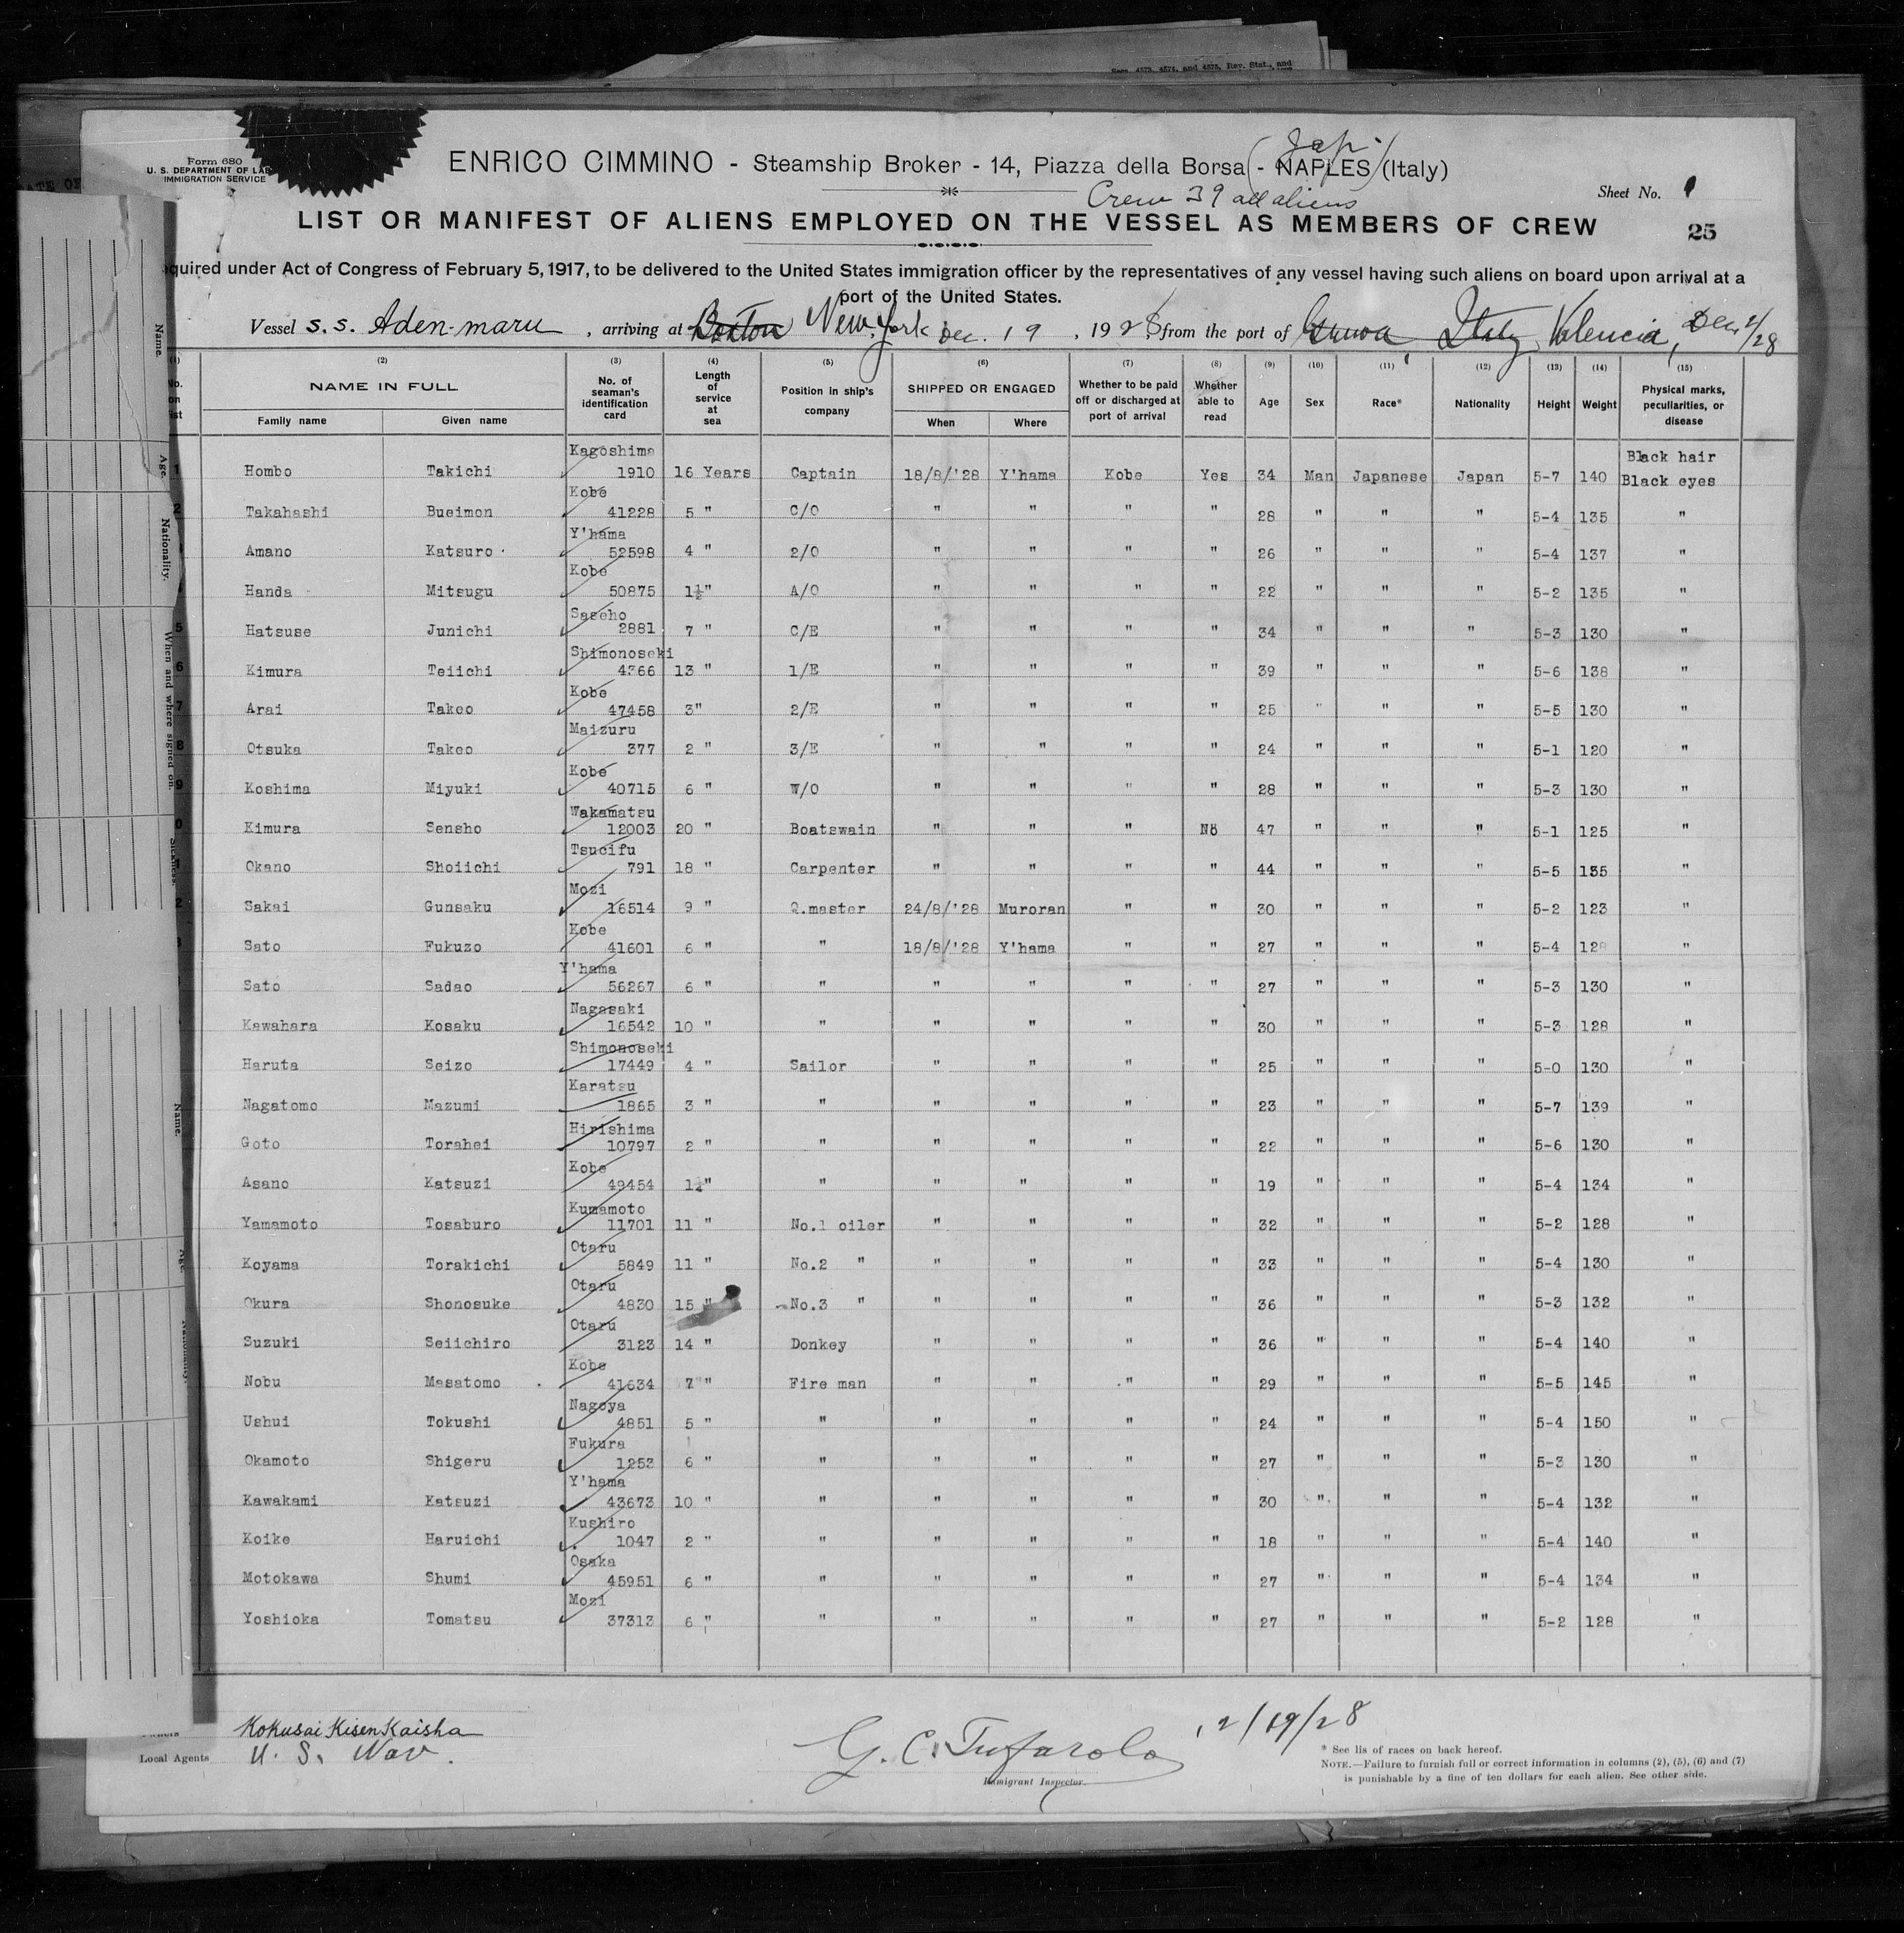 Secs. 4573, 4574, and 4575, Rev. Stat., and
Form 680
U. S. DEPARTMENT OF LAB
IMMIGRATION SERVICE
ENRICO CIMMINO - Steamship Broker - 14, Piazza della Borsa - NAPLES (Italy)
Jap.
Crew 39 all aliens
Sheet No. 1
LIST OR MANIFEST OF ALIENS EMPLOYED ON THE VESSEL AS MEMBERS OF CREW
25
quired under Act of Congress of February 5, 1917, to be delivered to the United States immigration officer by the representatives of any vessel having such aliens on board upon arrival at a
port of the United States.
Vessel S.S. Aden-maru, arriving at Boston New York Dec. 19, 1928, from the port of Genoa Italy Valencia, Dec 2/28
(1) (2) (3) (4) (5) (6) (7) (8) (9) (10) (11) (12) (13) (14) (15)
No. on list NAME IN FULL Family name Given name No. of seaman's identification card Length of service at sea Position in ship's company SHIPPED OR ENGAGED When Where Whether to be paid off or discharged at port of arrival Whether able to read Age Sex Race* Nationality Height Weight Physical marks, peculiarities, or disease
1 Hombo Takichi Kagoshima 1910 16 Years Captain 18/8/'28 Y'hama Kobe Yes 34 Man Japanese Japan 5-7 140 Black hair Black eyes
2 Takahashi Bueimon Kobe 41228 5 " C/O " " " " 28 " " " 5-4 135 "
Amano Katsuro Y'hama 52598 4 " 2/O " " " " 26 " " " 5-4 137 "
Handa Mitsugu Kobe 50875 1½" A/O " " " " 22 " " " 5-2 135 "
5 Hatsuse Junichi Saseho 2881 7 " C/E " " " " 34 " " " 5-3 130 "
6 Kimura Teiichi Shimonoseki 4366 13 " 1/E " " " " 39 " " " 5-6 138 "
7 Arai Takeo Kobe 47458 3" 2/E " " " " 25 " " " 5-5 130 "
8 Otsuka Takeo Maizuru 377 2 " 3/E " " " " 24 " " " 5-1 120 "
9 Koshima Miyuki Kobe 40715 6 " W/O " " " " 28 " " " 5-3 130 "
0 Kimura Sensho Wakamatsu 12003 20 " Boatswain " " " No 47 " " " 5-1 125 "
1 Okano Shoiichi Tsucifu 791 18 " Carpenter " " " " 44 " " " 5-5 135 "
2 Sakai Gunsaku Mozi 16514 9 " Q.master 24/8/'28 Muroran " " 30 " " " 5-2 123 "
3 Sato Fukuzo Kobe 41601 6 " " 18/8/'28 Y'hama " " 27 " " " 5-4 128 "
Sato Sadao Y'hama 56267 6 " " " " " " 27 " " " 5-3 130 "
Kawahara Kosaku Nagasaki 16542 10 " " " " " " 30 " " " 5-3 128 "
Haruta Seizo Shimonoseki 17449 4 " Sailor " " " " 25 " " " 5-0 130 "
Nagatomo Mazumi Karatsu 1865 3 " " " " " " 23 " " " 5-7 139 "
Goto Torahei Hirishima 10797 2 " " " " " " 22 " " " 5-6 130 "
Asano Katsuzi Kobe 49454 1¼" " " " " " 19 " " " 5-4 134 "
Yamamoto Tosaburo Kumamoto 11701 11 " No.1 oiler " " " " 32 " " " 5-2 128 "
Koyama Torakichi Otaru 5849 11 " No.2 " " " " " 33 " " " 5-4 130 "
Okura Shonosuke Otaru 4830 15 " No.3 " " " " " 36 " " " 5-3 132 "
Suzuki Seiichiro Otaru 3123 14 " Donkey " " " " 36 " " " 5-4 140 "
Nobu Masatomo Kobe 41634 7 " Fire man " " " " 29 " " " 5-5 145 "
Ushui Tokushi Nagoya 4851 5 " " " " " " 24 " " " 5-4 150 "
Okamoto Shigeru Fukura 1253 6 " " " " " " 27 " " " 5-3 130 "
Kawakami Katsuzi Y'hama 43673 10 " " " " " " 30 " " " 5-4 132 "
Koike Haruichi Kushiro 1047 2 " " " " " " 18 " " " 5-4 140 "
Motokawa Shumi Osaka 45951 6 " " " " " " 27 " " " 5-4 134 "
Yoshioka Tomatsu Mozi 37313 6 " " " " " " 27 " " " 5-2 128 "
Name.
Age.
Nationality.
When and where signed on.
Sickness.
Name.
Age.
Kokusai Kisen Kaisha
Local Agents U. S. Nav.
G. C. Tufarolo 12/19/28
Immigrant Inspector.
* See lis of races on back hereof.
NOTE.—Failure to furnish full or correct information in columns (2), (5), (6) and (7)
is punishable by a fine of ten dollars for each alien. See other side.